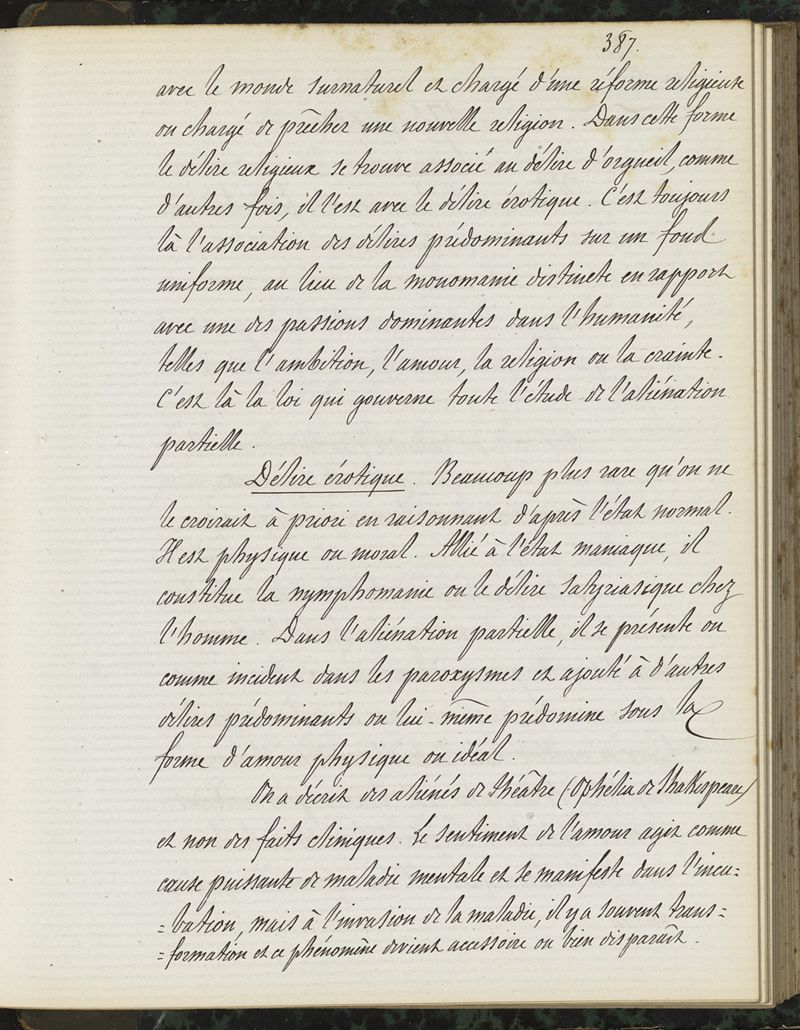 387.
avec le monde surnaturel et chargé d'une réforme religieuse
ou chargé de prêcher une nouvelle religion. Dans cette forme
le délire religieux se trouve associé au délire d'orgueil, comme
d'autres fois, il l'est avec le délire érotique. C'est toujours
là l'association des délires prédominants sur un fond
uniforme, au lieu de la monomanie distincte en rapport
avec une des passions dominantes dans l'humanité,
telles que l'ambition, l'amour, la religion ou la crainte.
C'est là la loi qui gouverne toute l'étude de l'aliénation
partielle.
Délire érotique. Beaucoup plus rare qu'on ne
le croirait à priori en raisonnant d'après l'état normal.
Il est physique ou moral. Allié à l'état maniaque, il
constitue la nymphomanie ou le délire satyriasique chez
l'homme. Dans l'aliénation partielle, il se présente ou
comme incident dans les paroxysmes et ajouté à d'autres
délires prédominants ou lui-même prédomine sous la
forme d'amour physique ou idéal.
On a décrit des aliénés de théâtre (Ophélia de Shakespeare)
et non des faits cliniques. Le sentiment de l'amour agit comme
cause puissante de maladie mentale et se manifeste dans l'incu=
=bation, mais à l'invasion de la maladie, il y a souvent trans=
=formation et ce phénomène devient accessoire ou bien disparaît.